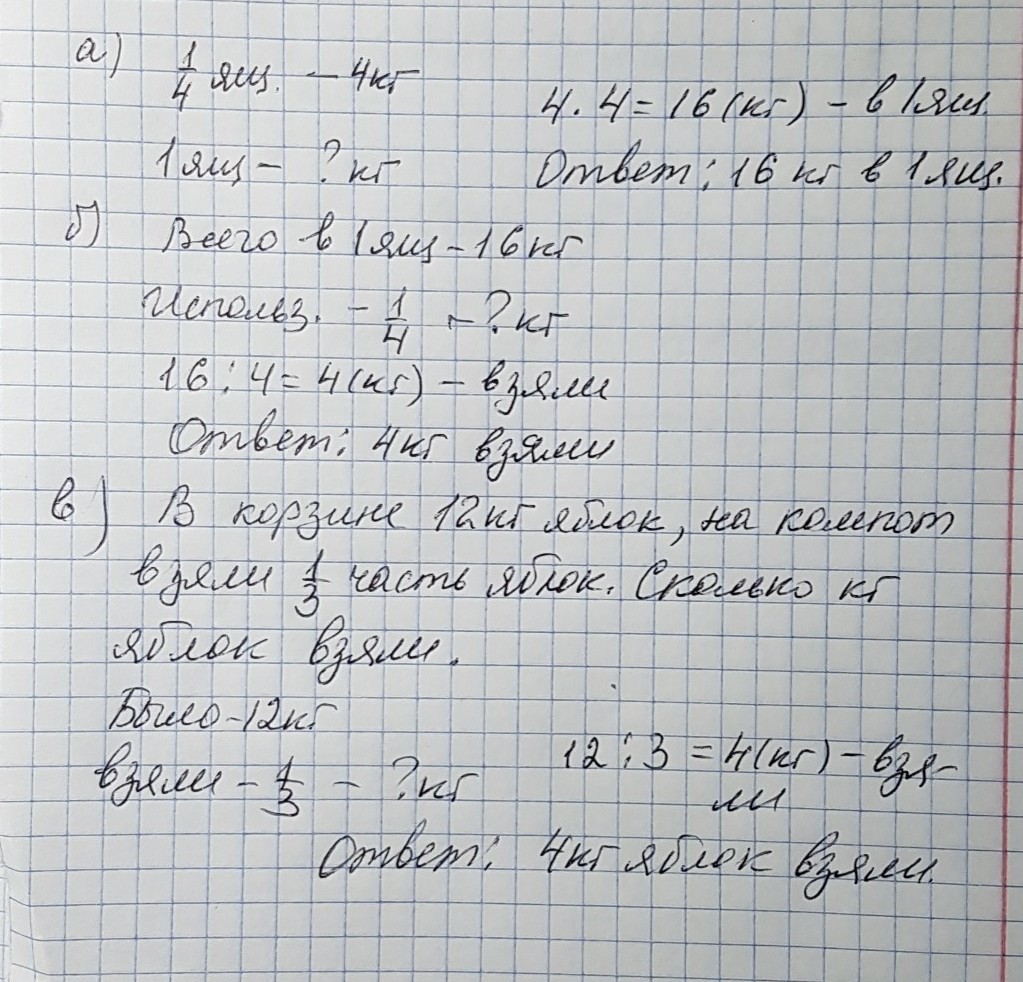 а) 1/4 ящ. – 4кг
4 · 4 = 16 (кг) – в 1 ящ.
1 ящ – ? кг
Ответ: 16 кг в 1 ящ.
б) Всего в 1 ящ – 16 кг
Использ. – 1/4 – ? кг
16 : 4 = 4 (кг) – взяли
Ответ: 4кг взяли
в) В корзине 12кг яблок, на компот
взяли 1/3 часть яблок. Сколько кг
яблок взяли.
Было – 12кг
взяли – 1/3 – ? кг
12 : 3 = 4 (кг) – взя-
ли
Ответ: 4кг яблок взяли.